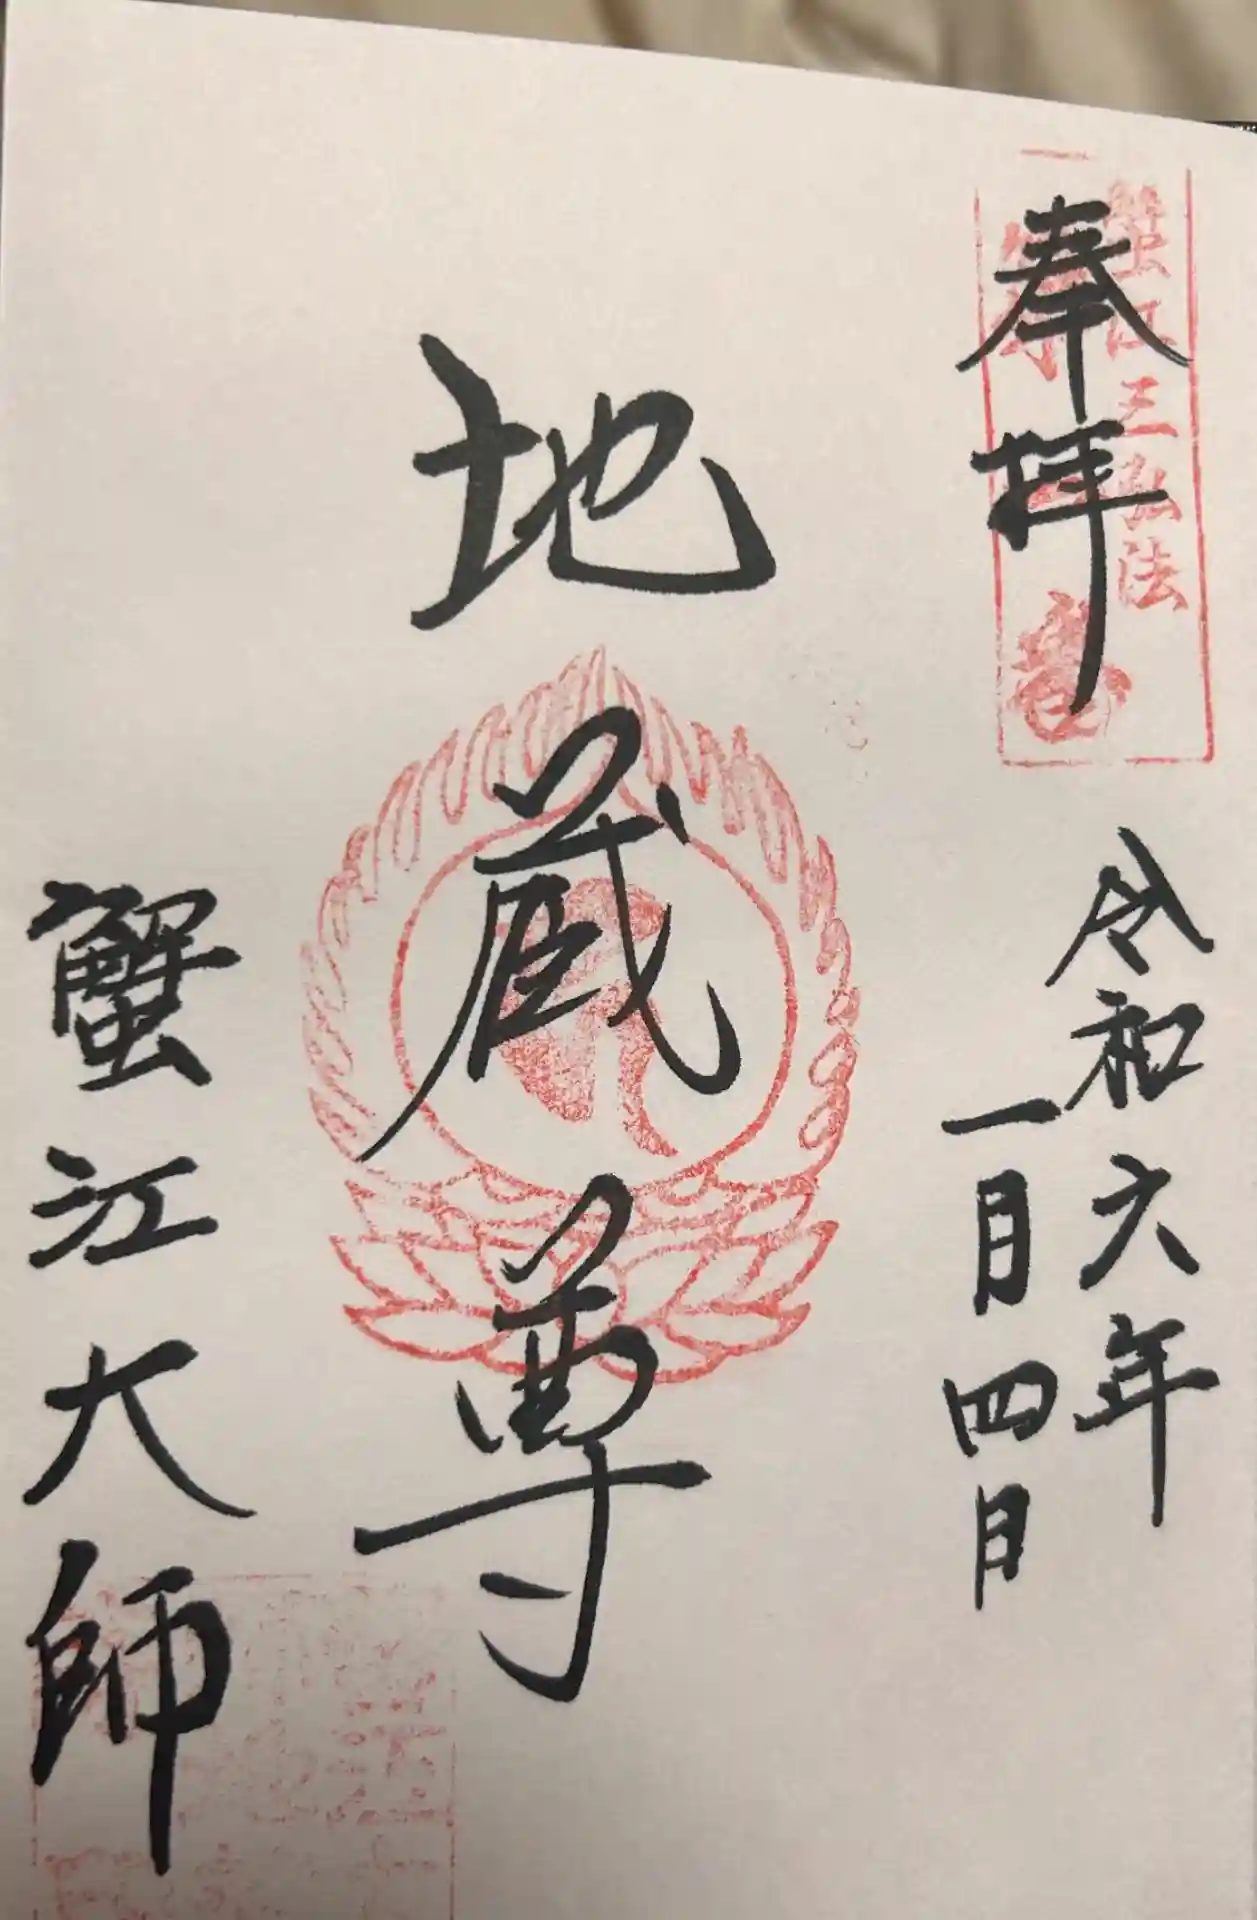 奉拝
蟹江三弘法
令和六年
一月四日
地蔵尊
蟹江大師